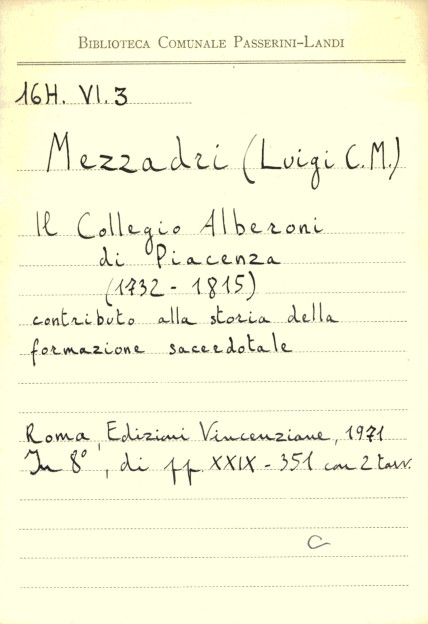 BIBLIOTECA COMUNALE PASSERINI-LANDI
16H. VI. 3
Mezzadri (Luigi C.M.)
Il Collegio Alberoni
di Piacenza
(1732 - 1815)
contributo alla storia della
formazione sacerdotale
Roma, Edizioni Vincenziane, 1971
In 8°, di pp. XXIX - 351 con 2 tavv.
C